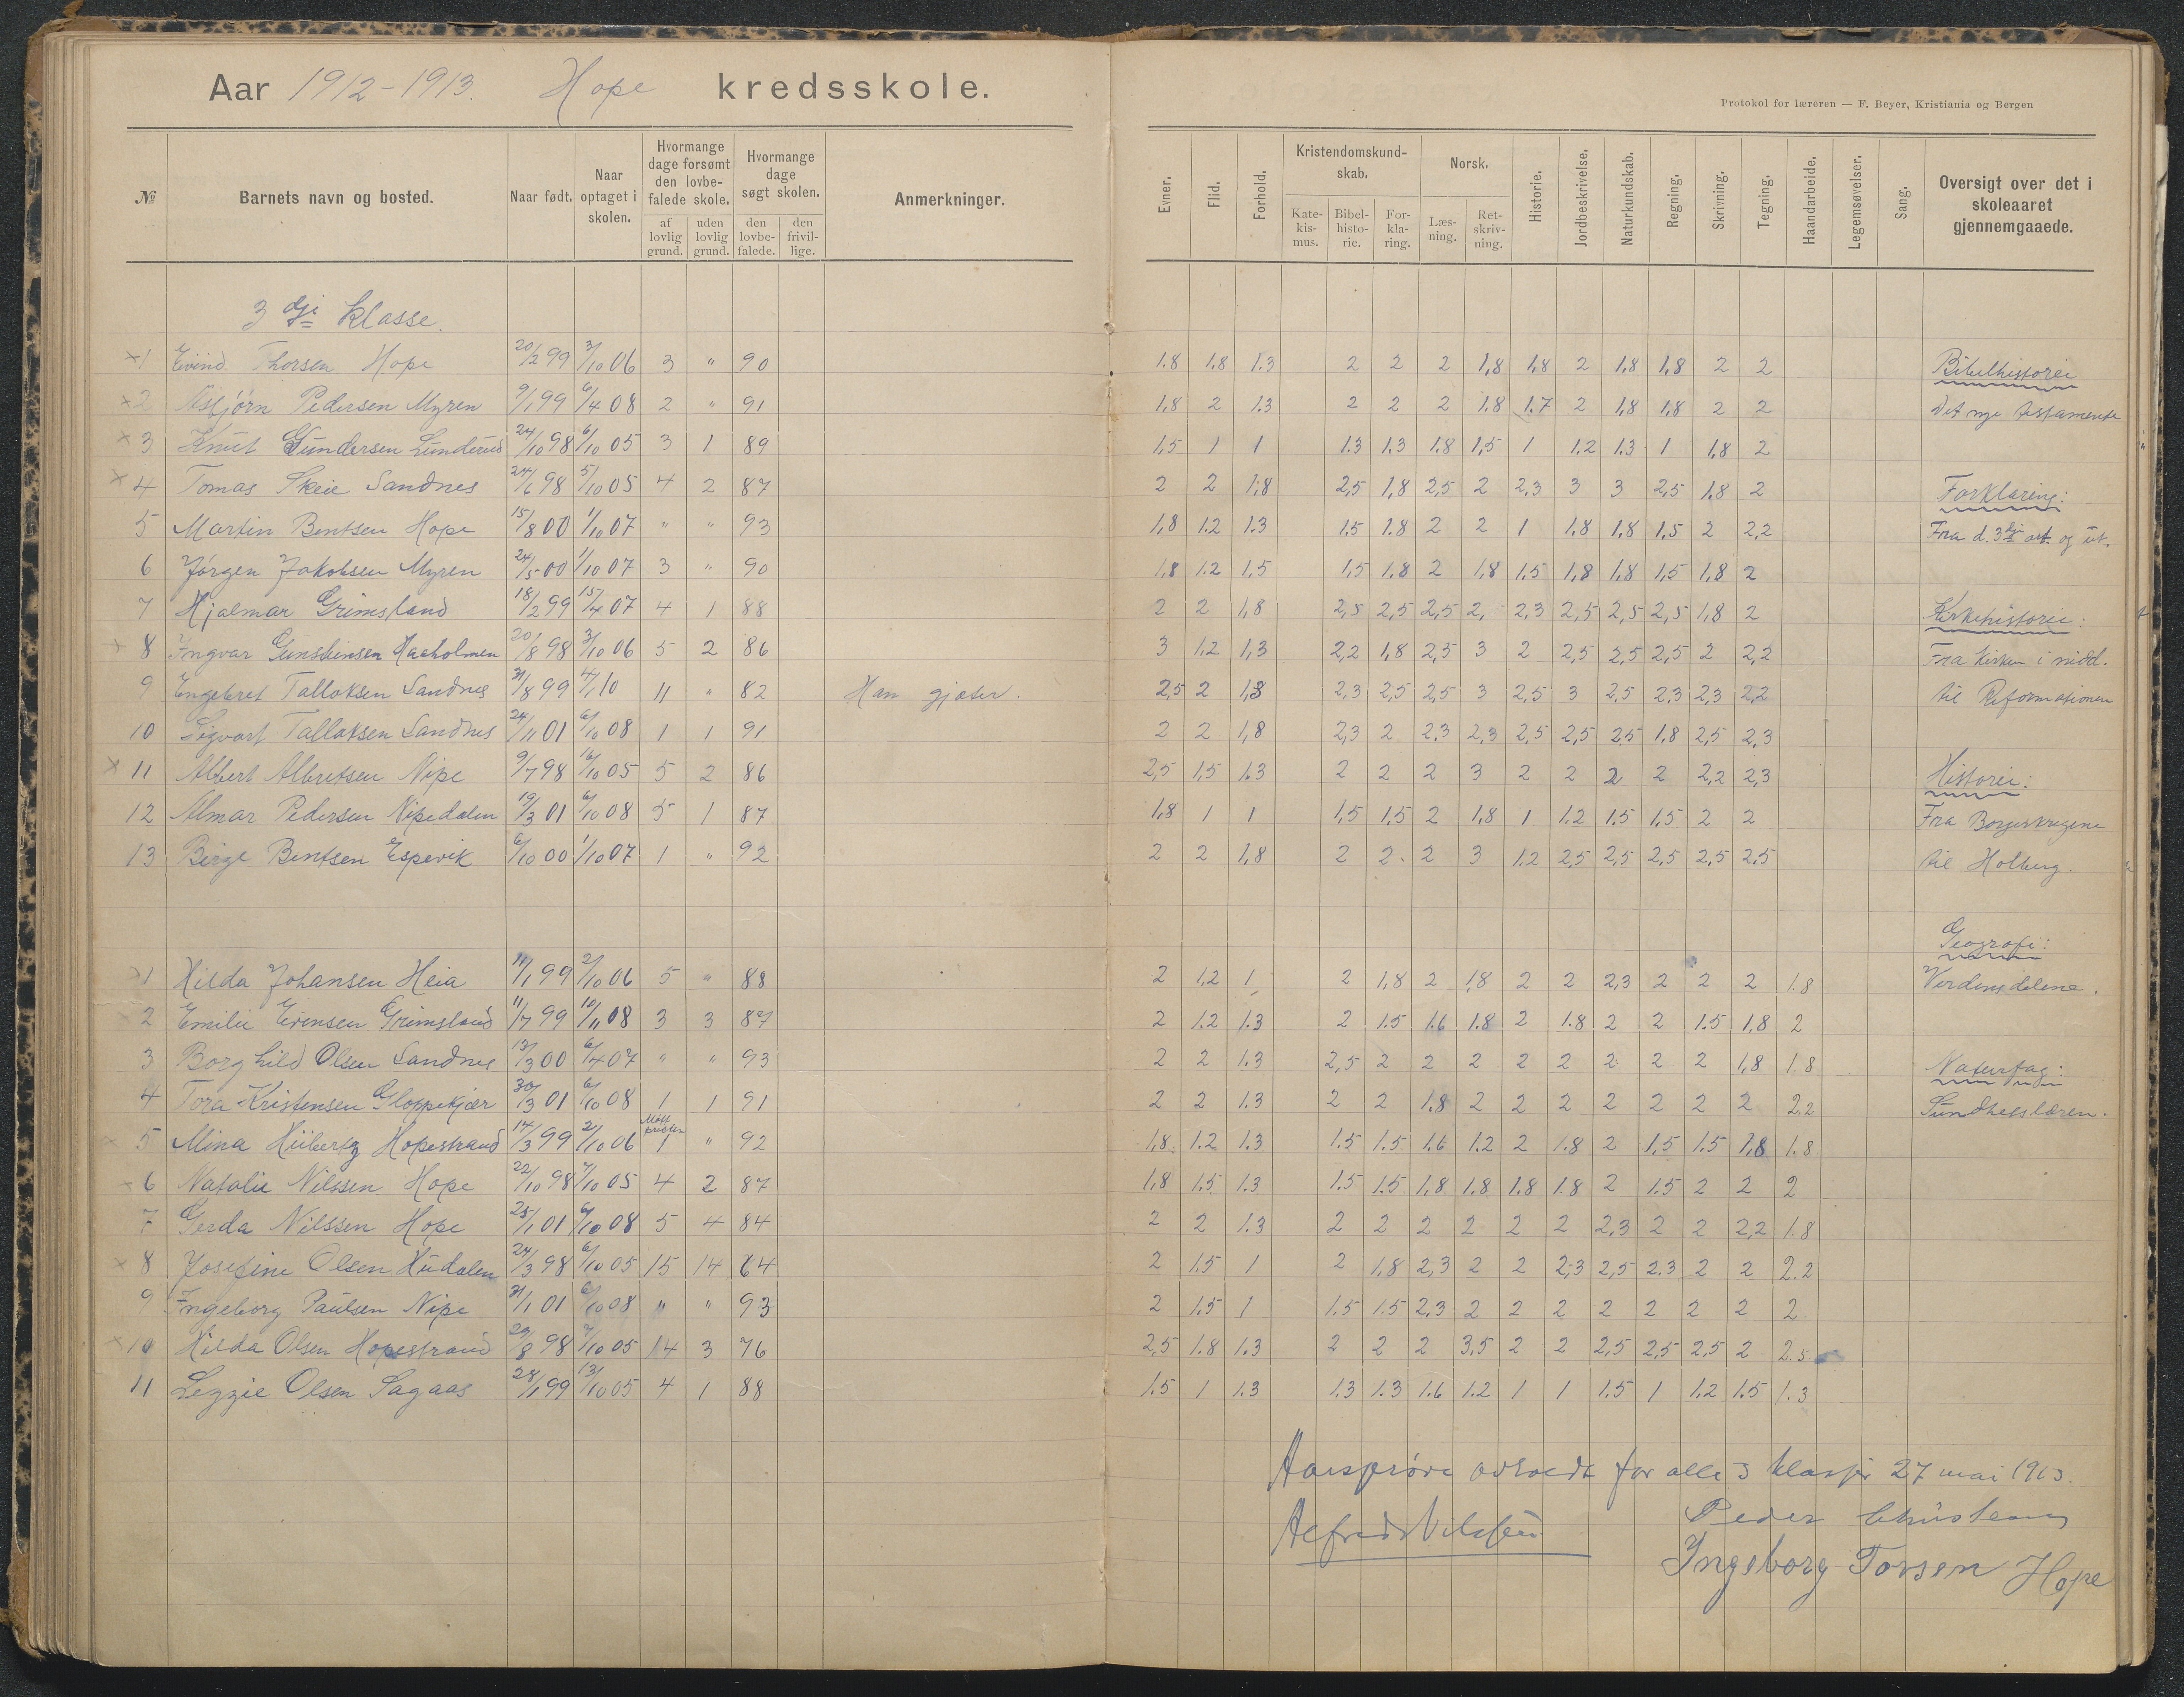 Aar 1912-1913. Hope kredsskole.
Protokol for læreren — F. Beyer, Kristiania og Bergen
№ Barnets navn og bosted. Naar født. Naar optaget i skolen. Hvormange dage forsømt den lovbefalede skole. af lovlig grund. uden lovlig grund. Hvormange dage søgt skolen. den lovbefalede. den frivillige. Anmerkninger.
Evner. Flid. Forhold. Kristendomskundskab. Katekismus. Bibelhistorie. Forklaring. Norsk. Læsning. Retskrivning. Historie. Jordbeskrivelse. Naturkundskab. Regning. Skrivning. Tegning. Haandarbeide. Legemsøvelser. Sang. Oversigt over det i skoleaaret gjennemgaaede.
3 dji klasse.
×1 Eivind Thorsen Hope 20/2 99 3/10 06 3 " 90 1.8 1.8 1.3 2 2 2 1,8 1,8 2 1,8 1,8 2 2 Bibelhistorie
×2 Asbjörn Pedersen Myren 9/1 99 6/4 08 2 " 91 1,8 2 1.3 2 2 2 1.8 1.7 2 1,8 1,8 2 2 Det nye testamente
×3 Knut Gundersen Lunderud 24/10 98 6/10 05 3 1 89 1,5 1 1 1.3 1.3 1.8 1,5 1 1.2 1.3 1 1,8 2
×4 Tomas Skeie Sandnes 24/6 98 5/10 05 4 2 87 2 2 1,8 2,5 1,8 2,5 2 2,3 3 3 2,5 1,8 2 Forklaring:
5 Martin Bentsen Hope 15/8 00 1/10 07 " " 93 1,8 1.2 1.3 1.5 1.8 2 2 1 1.8 1,8 1.5 2 2,2 Fra d. 3dji art. og ut.
6 Jørgen Jakobsen Myren 24/5 00 1/10 07 3 " 90 1,8 1.2 1,5 1,5 1.8 2 1,8 1.5 1,8 1.8 1,5 1,8 2
7 Hjalmar Grimsland 18/2 99 15/4 07 4 1 88 2 2 1,8 2,5 2,5 2,5 2, 2,3 2,5 2,5 2,5 1,8 2 Kirkehistorie:
×8 Ingvar Gunsteinsen Haaholmen 20/8 98 3/10 06 5 2 86 3 1.2 1,3 2,2 1,8 2,5 3 2 2,5 2,5 2,5 2 2,2 Fra kirken i midd.
9 Engebret Tallaksen Sandnes 31/8 99 4/1 10 11 " 82 Han gjæter. 2,5 2 1,8 2,3 2,5 2,5 3 2,5 3 2,5 2,3 2,3 2,2 til Reformationen
10 Sigvart Tallaksen Sandnes 24/11 01 6/10 08 1 1 91 2 2 1,8 2,3 2 2.3 2,3 2,5 2,5 2,5 1.8 2,5 2,3
×11 Albert Albretsen Nipe 9/7 98 16/10 05 5 2 86 2,5 1,5 1.3 2 2 2 3 2 2 2 2 2,2 2,3 Historie:
12 Almar Pedersen Nipedalen 19/3 01 6/10 08 5 1 87 1,8 1 1 1,5 1,5 2 1,8 1 1.2 1.5 1.5 2 2 Fra Borgerkrigene
13 Birge Bentsen Espevik 6/10 00 1/10 07 1 " 92 2 2 1,8 2 2. 2 3 1.2 2,5 2,5 2,5 2,5 2,5 til Holberg.
Geografi:
×1 Hilda Johansen Heia 11/1 99 2/10 06 5 " 88 2 1,2 1 2 1,8 2 1,8 2 2 2,3 2 2 2 1.8 Verdensdelene.
2 Emilie Evensen Grimsland 11/7 99 10/11 08 3 3 87 2 1.2 1.3 2 1.5 1.6 1.8 2 1.8 2 2 1.5 1,8 2
3 Borghild Olsen Sandnes 13/3 00 6/4 07 " " 93 2 2 1.3 2,5 2 2 2 2 2 2 2 2 1,8 1.8 Naturfag:
4 Tora Kristensen Gloppekjær 30/3 01 6/10 08 1 1 91 2 2 1.3 2 2 1.8 2 2 2 2 2 2 2 2.2 Sundhetslæren.
5 Mina Hübertz Hopestrand 14/3 99 2/10 06 1 " 92 1,8 1.2 1.3 1.5 1.5 1.6 1.2 2 1.8 2 1,5 1.5 1,8 1.8
×6 Natalie Nilssen Hope 22/10 98 7/10 05 4 2 87 1,8 1.5 1.3 1.5 1.5 1,8 1.8 1.8 1.8 2 1.5 2 2 2
7 Gerda Nilssen Hope 25/1 01 6/10 08 5 4 84 2 2 1.3 2 2 2 2 2 2 2,3 2 2 2,2 1.8
×8 Josefine Olsen Hudalen 24/3 98 6/10 05 15 14 64 2 1.5 1 2 1,8 2,3 2 2 2,3 2,5 2.3 2 2 2.2
9 Ingeborg Paulsen Nipe 31/1 01 6/10 08 " " 93 2 1.5 1 1.5 1.5 2,3 2 2 2 2 2 2 2 2
×10 Hilda Olsen Hopestrand 29/8 98 7/10 05 14 3 76 2,5 1.8 1.3 2 2 2 3,5 2 2 2,5 2,5 2,5 2 2.5
11 Lezzie Olsen Sagaas 28/1 99 13/10 05 4 1 88 1.5 1 1.3 1.3 1.3 1.6 1.2 1 1 1.5 1 1.2 1.5 1.3
Aarsprøve avholdt for alle 3 klasser 27 mai 1913.
Alfred Nilssen Peder
Ingeborg Torsen Hope